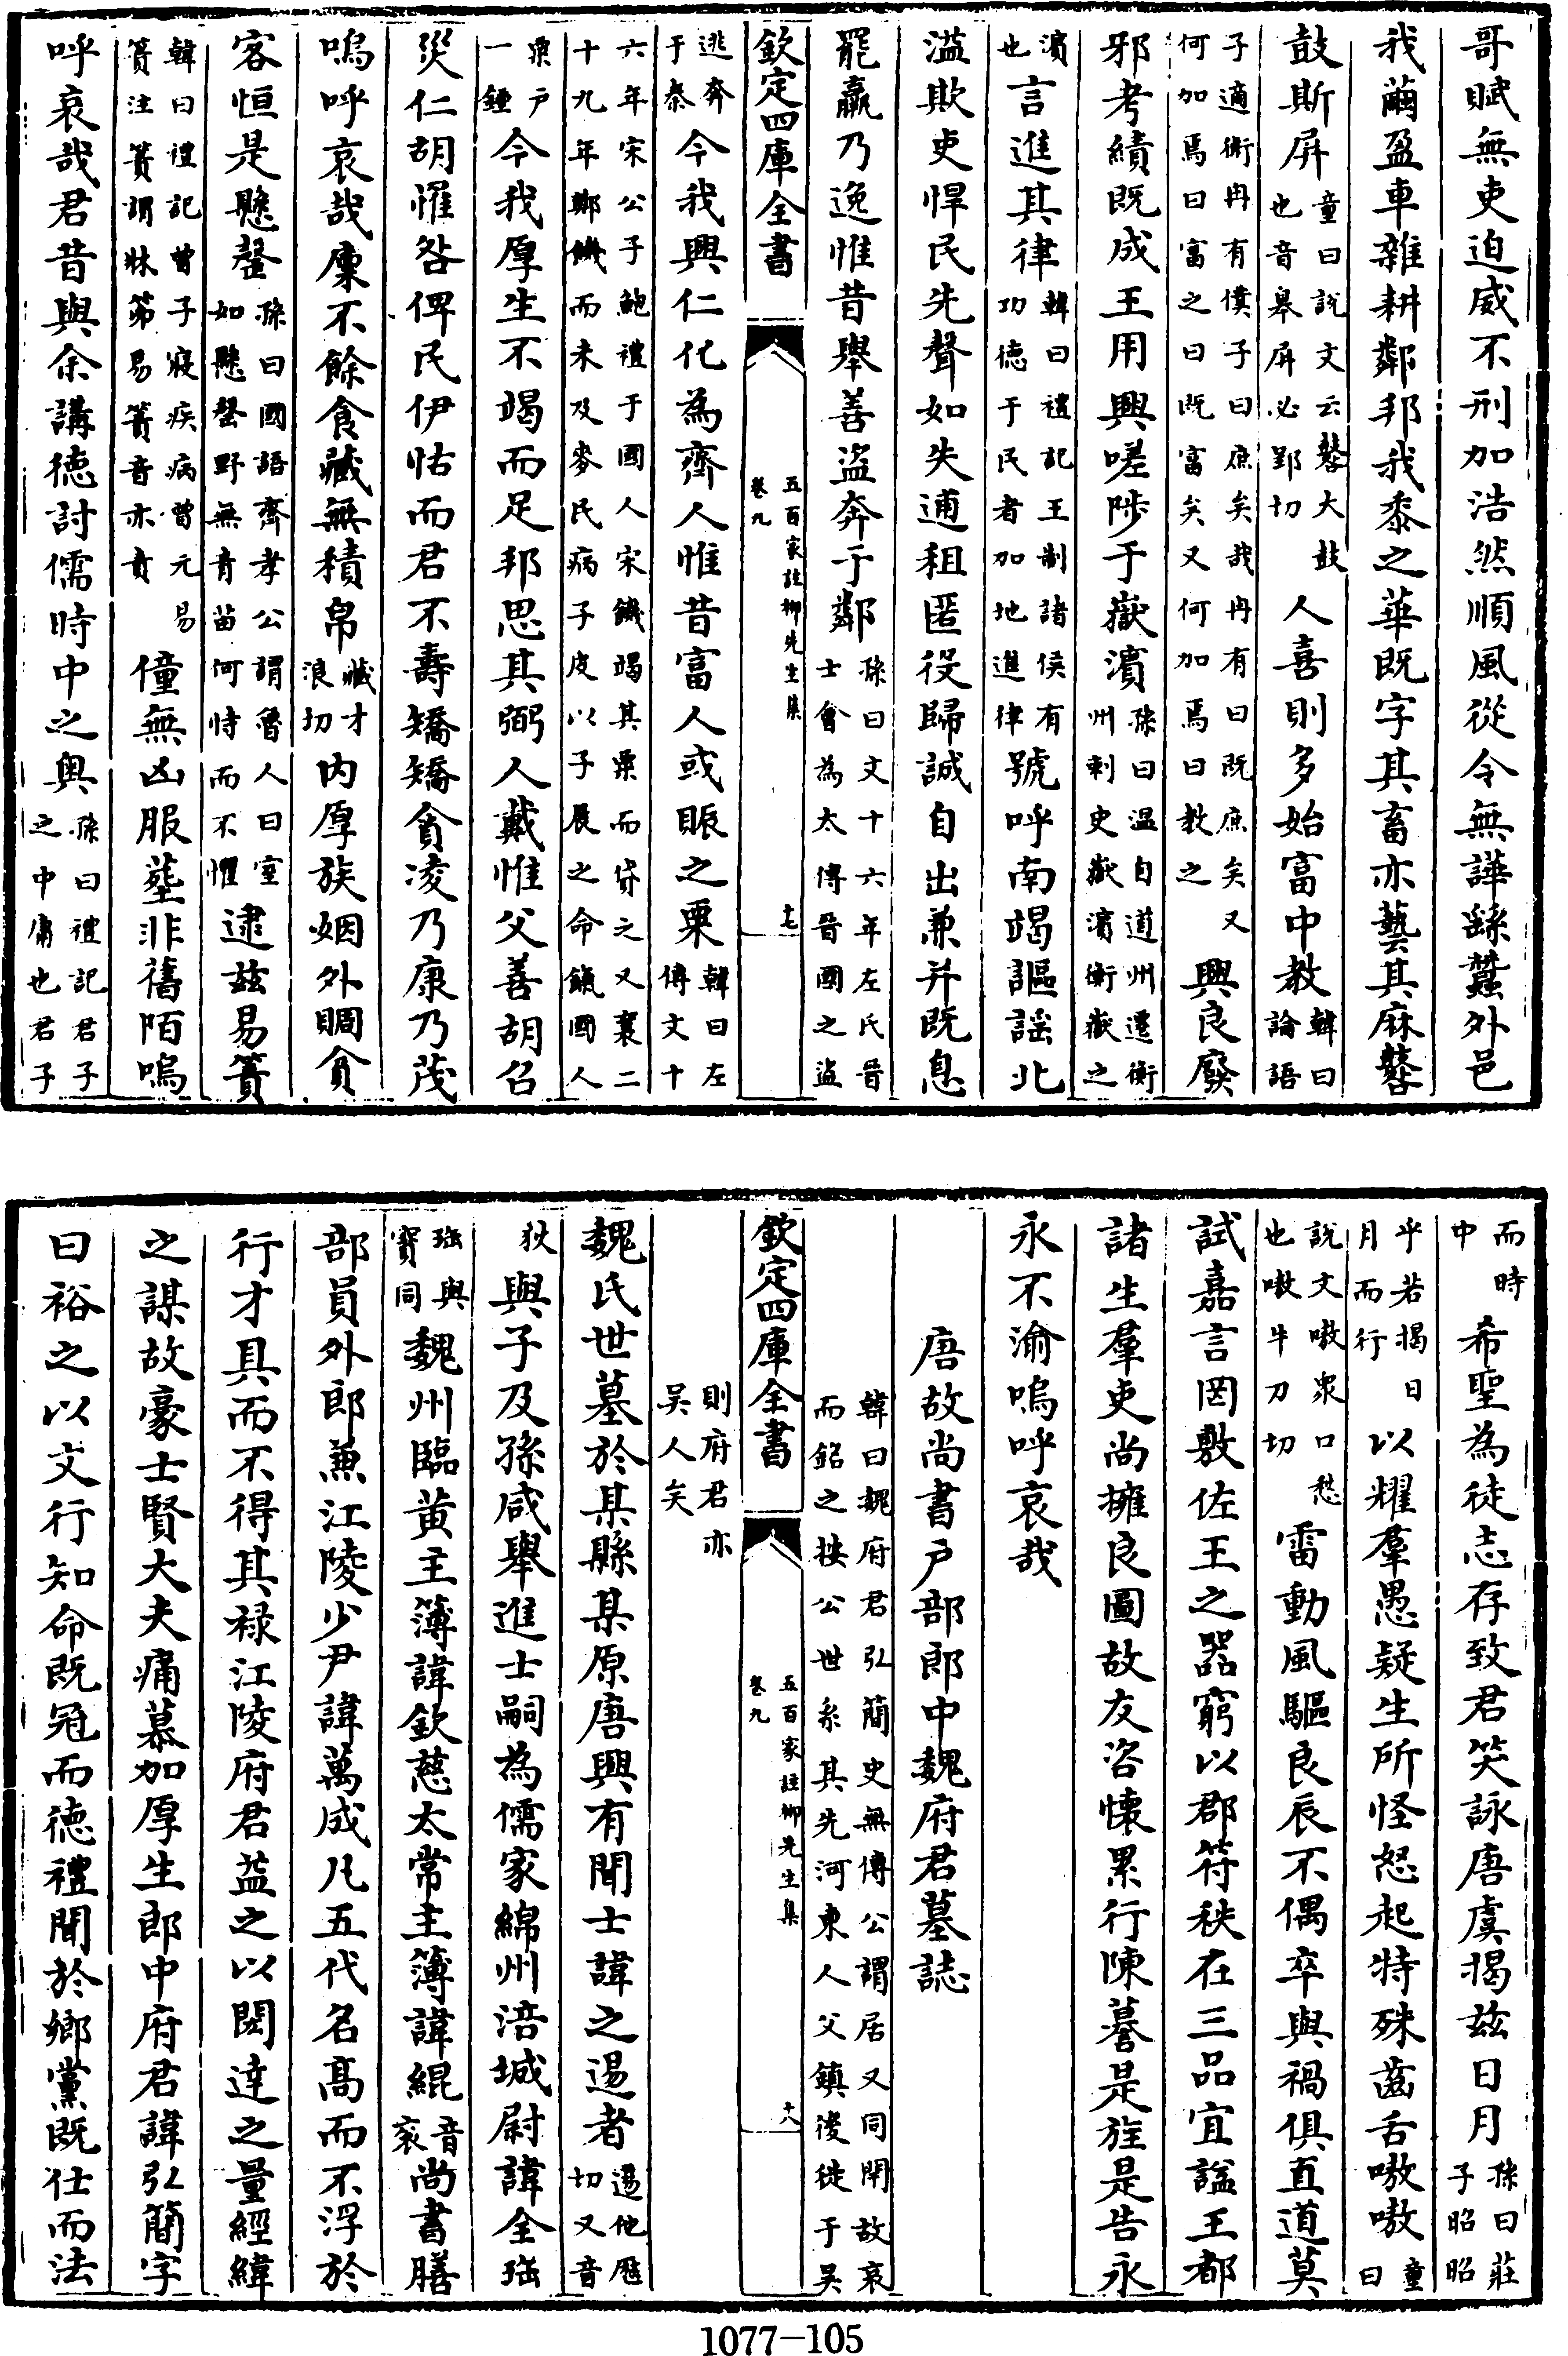 哥賦無吏迫威不刑加浩然順風從令無譁繇蠶外邑
我繭盈車雜耕鄰邦我黍之華既字其畜亦藝其麻鼛
鼓斯屏童曰說文云鼛大鼓也音皋屏必郢切人喜則多始富中教韓曰論語
子適衛冉有僕子曰庶矣哉冉有曰既庶矣又何加焉曰富之曰既富矣又何加焉曰教之興良廢
邪考績既成王用興嗟陟于嶽濱孫曰温自道州遷衡州刺史嶽濱衡嶽之
濱也言進其律韓曰禮記王制諸侯有功德于民者加地進律號呼南竭謳謡北
溢欺吏悍民先聲如失逋租匿役歸誠自出兼并既息
罷羸乃逸惟昔舉善盜奔于鄰孫曰文十六年左氏晉士會為太傅晉國之盜
欽定四庫全書
五百家註柳先生集
卷九
十七
逃奔于秦今我興仁化為齊人惟昔富人或賑之粟韓曰左傳文十
六年宋公子鮑禮于國人宋饑竭其粟而貸之又襄二十九年鄭饑而未及麥民病子皮以子展之命餼國人
粟户一鍾今我厚生不竭而足邦思其弼人戴惟父善胡召
災仁胡罹咎俾民伊怙而君不壽矯矯貪凌乃康乃茂
嗚呼哀哉廩不餘食藏無積帛藏才浪切内厚族姻外賙貧
客恒是懸罄孫曰國語齊孝公謂魯人曰室如懸罄野無青苗何恃而不懼逮兹易簀
韓曰禮記曾子寢疾病曾元易簀注簀謂牀笫易簀音亦責僮無凶服塟非舊陌嗚
呼哀哉君昔與余講德討儒時中之奥孫曰禮記君子之中庸也君子
而時中希聖為徒志存致君笑詠唐虞揭兹日月孫曰莊子昭昭
乎若揭日月而行以耀羣愚疑生所怪怒起特殊齒舌嗷嗷童曰
說文嗷衆口愁也嗷牛刀切雷動風驅良辰不偶卒與禍俱直道莫
試嘉言罔敷佐王之器窮以郡符秩在三品宜諡王都
諸生羣吏尚擁良圖故友咨懷累行陳謩是旌是告永
永不渝嗚呼哀哉
唐故尚書户部郎中魏府君墓誌
韓曰魏府君弘簡史無傳公謂居又同閈故哀而銘之按公世系其先河東人父鎮後徙于吴
欽定四庫全書
五百家註柳先生集
卷九
十八
則府君亦吴人矣
魏氏世墓於某縣某原唐興有聞士諱之逷者逷他歷切又音
狄與子及孫咸舉進士嗣為儒家綿州涪城尉諱全珤
珤與寳同魏州臨黄主簿諱欽慈太常主簿諱緄音衮尚書膳
部員外郎兼江陵少尹諱萬成凡五代名高而不浮於
行才具而不得其禄江陵府君益之以閎達之量經緯
之謀故豪士賢大夫痛慕加厚生郎中府君諱弘簡字
曰裕之以文行知命既冠而德禮聞於鄉黨既仕而法
1077-105